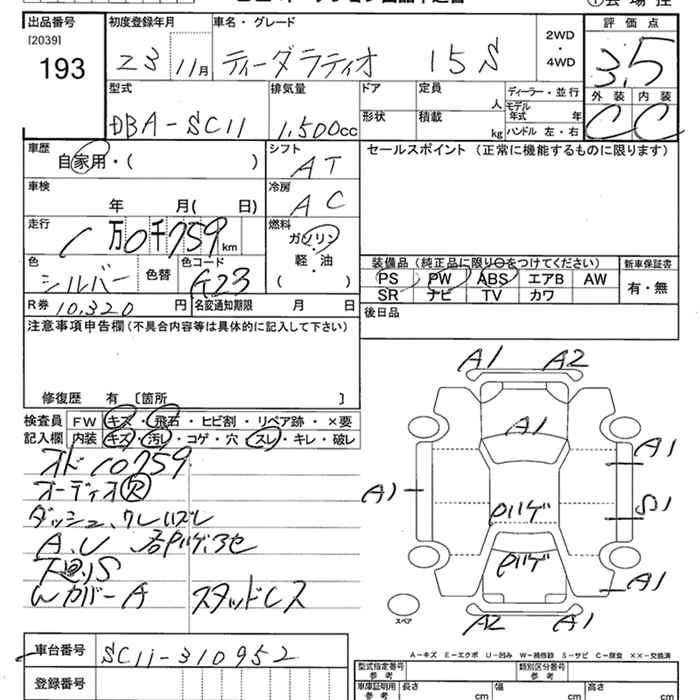 出品番号
[2039]
193
初度登録年月
23 11月
車名・グレード
ティーダラティオ 15S
2WD
・
4WD
評価点
3.5
外装 内装
C C
型式
DBA-SC11
排気量
1,500cc
ドア
定員
人
形状
積載
kg
ディーラー・並行
モデル年式 年
ハンドル 左・右
車歴
自家用・( )
シフト
AT
セールスポイント (正常に機能するものに限ります)
車検
年 月( 日)
冷房
AC
走行
1万0千759km
燃料
ガソリン
軽・油
( )
色
シルバー
色替
色コード
K23
装備品 (純正品に限り○をつけてください)
新車保証書
PS PW ABS エアB AW
有・無
SR ナビ TV カワ
R券 10,320円
名変通知期限 月 日
後日品
注意事項申告欄 (不具合内容等は具体的に記入して下さい)
修復歴 有 [箇所 ]
検査員
記入欄
FW キズ・飛石・ヒビ割・リペア跡・×要
内装 キズ・汚レ・コゲ・穴・スレ・キレ・破レ
オド10759
オーディオ欠
ダッシュ、
A.U
下廻りS
Wカバー A スタッドレス
A1 A2
A1
A1
A1
S1
A1
A2 A1
スペア
A-キズ E-エクボ U-凹み W-補修跡 S-サビ C-腐食 ××-交換済
車台番号
SC11-310952
登録番号
型式指定番号
参考
類別区分番号
参考
車庫証明用
参考
長さ cm
幅 cm
高さ cm